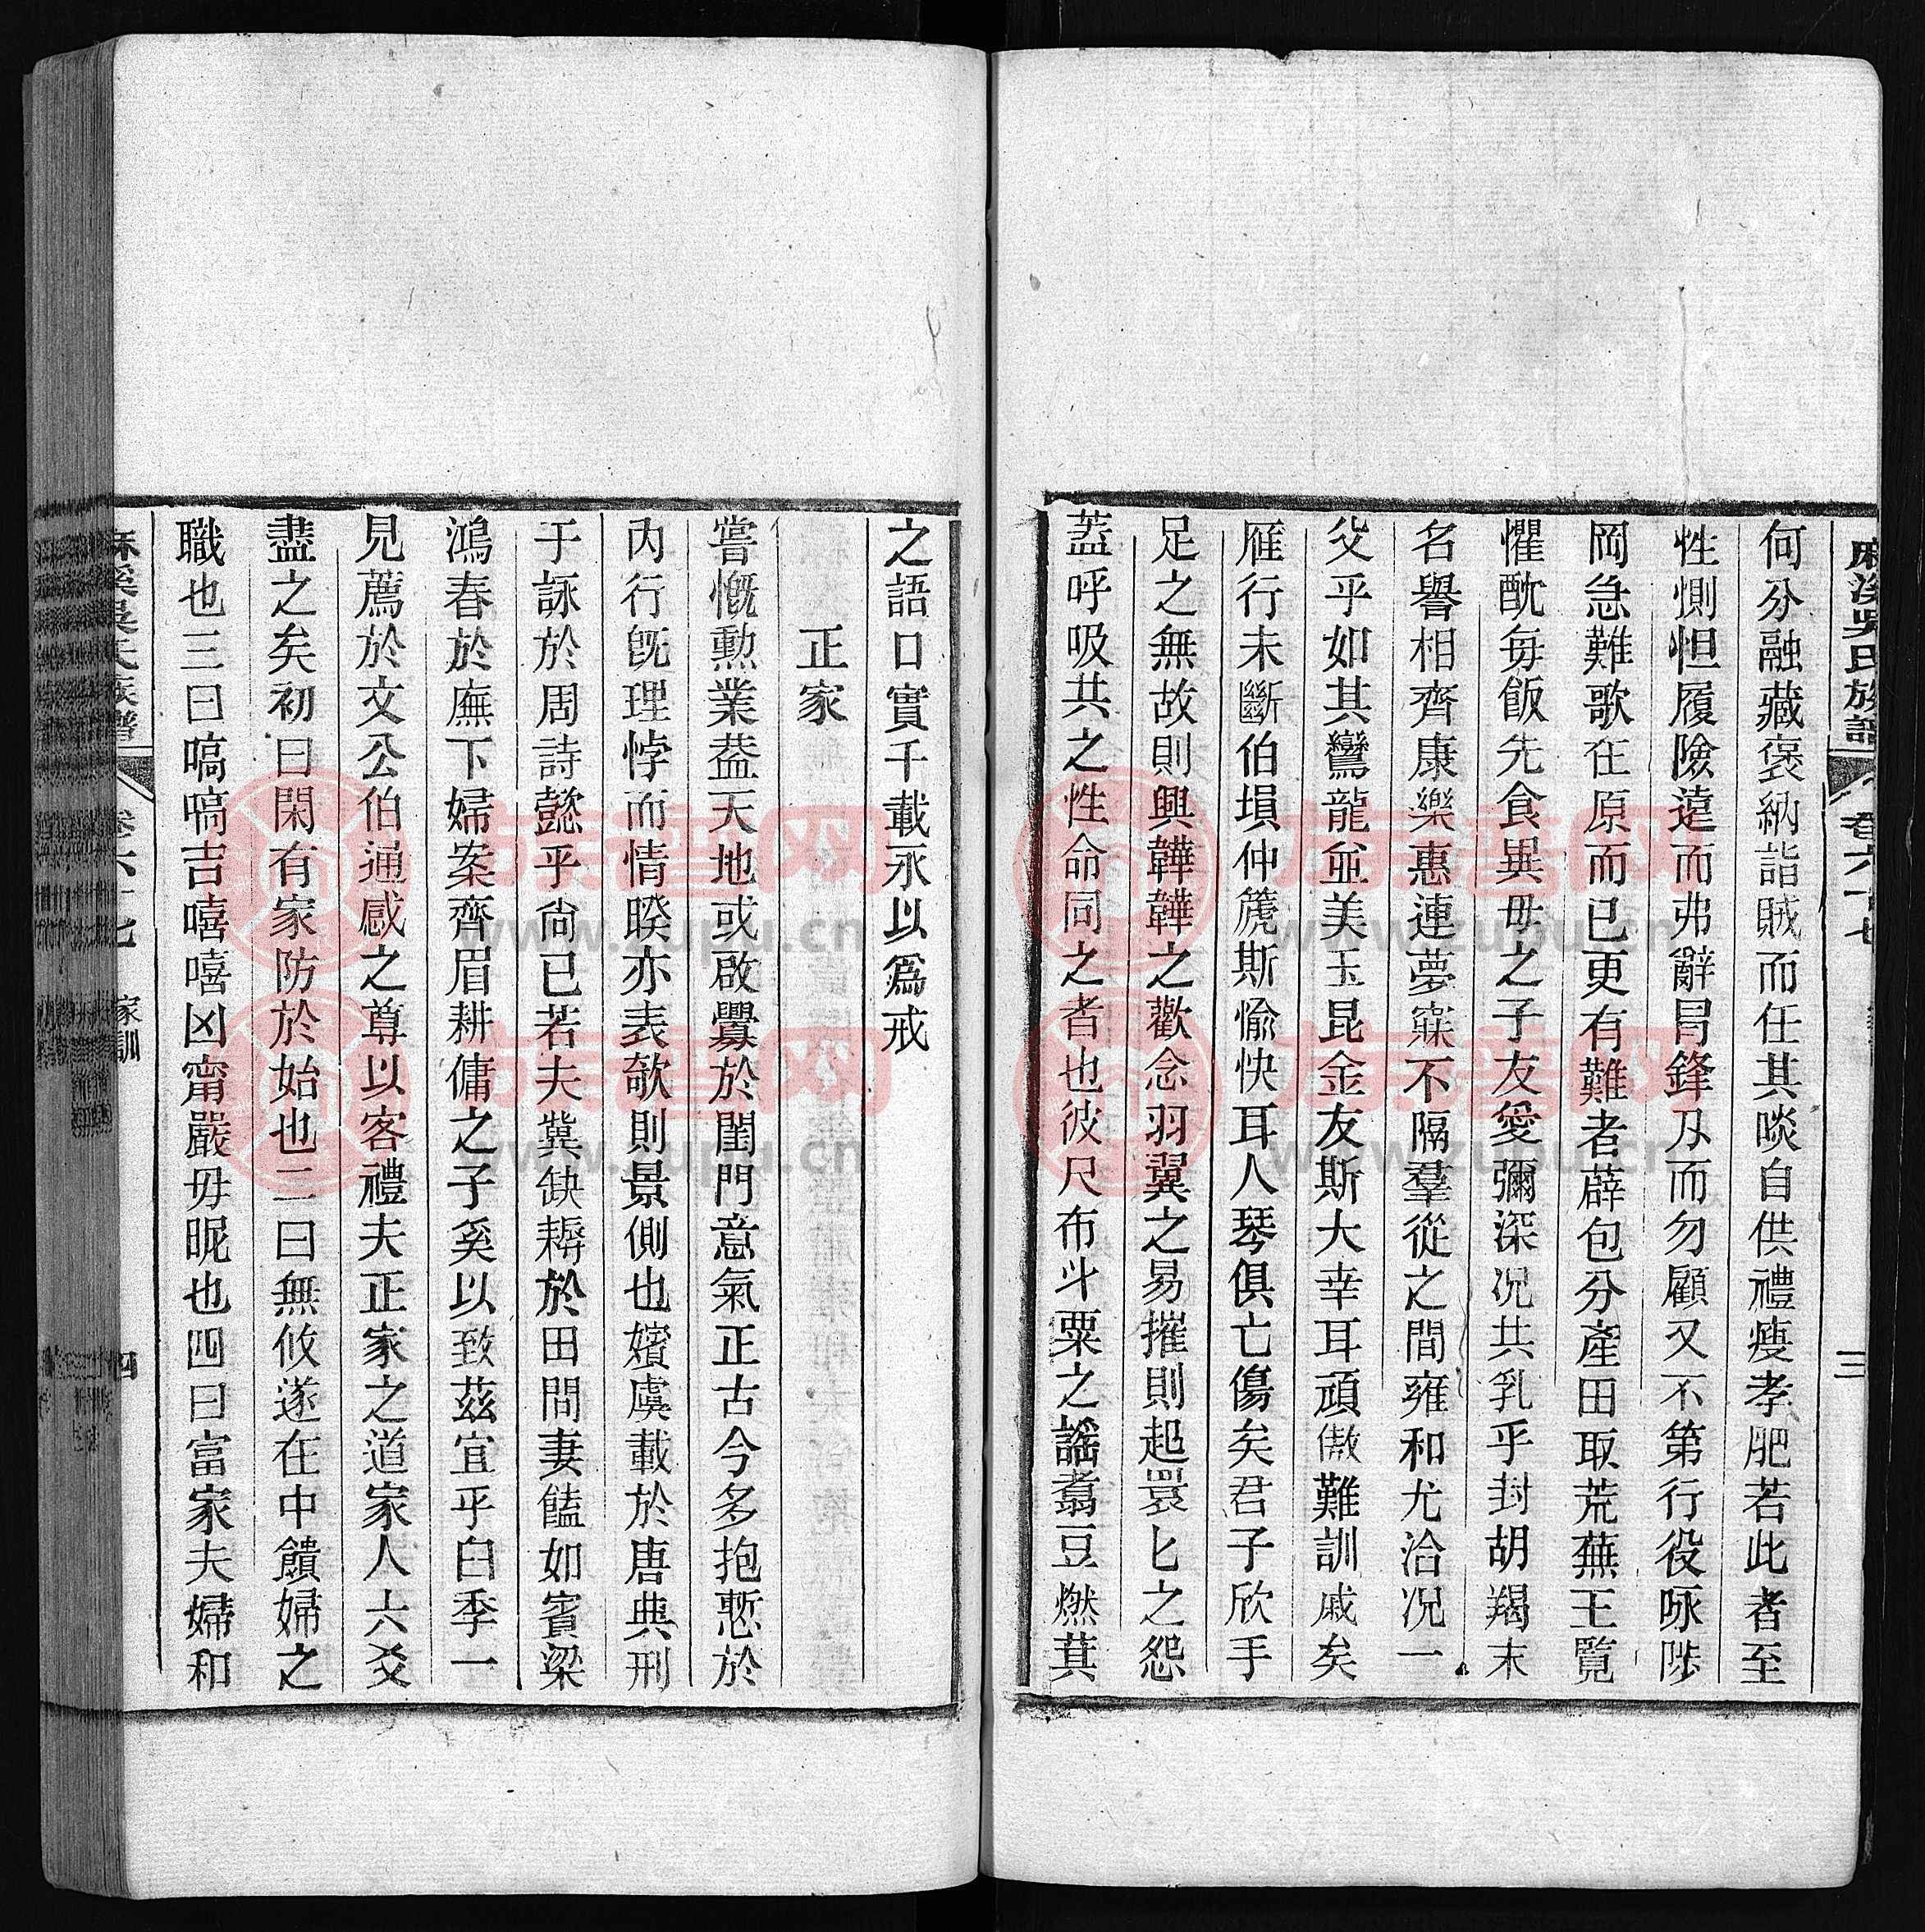 麻溪吳氏族譜 卷六十七 三
何分融藏褒納詣賊而任其啖自供禮瘦孝肥若此者至
性惻怛履險遠而弗辭冐鋒刄而勿顧又不第行役咏陟
岡急難歌在原而已更有難者薜包分產田取荒蕪王覽
懼酖每飯先食異毋之子友愛彌深况共乳乎封胡羯末
名譽相齊康樂惠連夢寐不隔羣從之間雍和尤洽况一
父乎如其鸞龍並美玉昆金友斯大幸耳頑傲難訓戚矣
雁行未斷伯塤仲篪斯愉快耳人琴俱亡傷矣君子欣手
足之無故則興韡韡之歡念羽翼之易摧則起睘匕之怨
葢呼吸共之性命同之者也彼尺布斗粟之謠翥豆燃萁
之語口實千載永以爲戒
正家
嘗慨勲業葢天地或啟釁於閨門意氣正古今多抱慙於
內行旣理悖而情暌亦表欹則景側也嬪虞載於唐典刑
于詠於周詩懿乎尙已若夫冀缺耨於田間妻饁如賓梁
鴻春於廡下婦案齊眉耕傭之子奚以致茲宜乎臼季一
見薦於文公伯通感之尊以客禮夫正家之道家人六爻
盡之矣初曰閑有家防於始也二曰無攸遂在中饋婦之
職也三曰嗃嗃吉嘻嘻凶甯嚴毋昵也四曰富家夫婦和
麻溪吳氏族譜 卷六十七 家訓 四
族譜网
www.zupu.cn
族譜网
www.zupu.cn
族譜网
www.zupu.cn
族譜网
www.zupu.cn